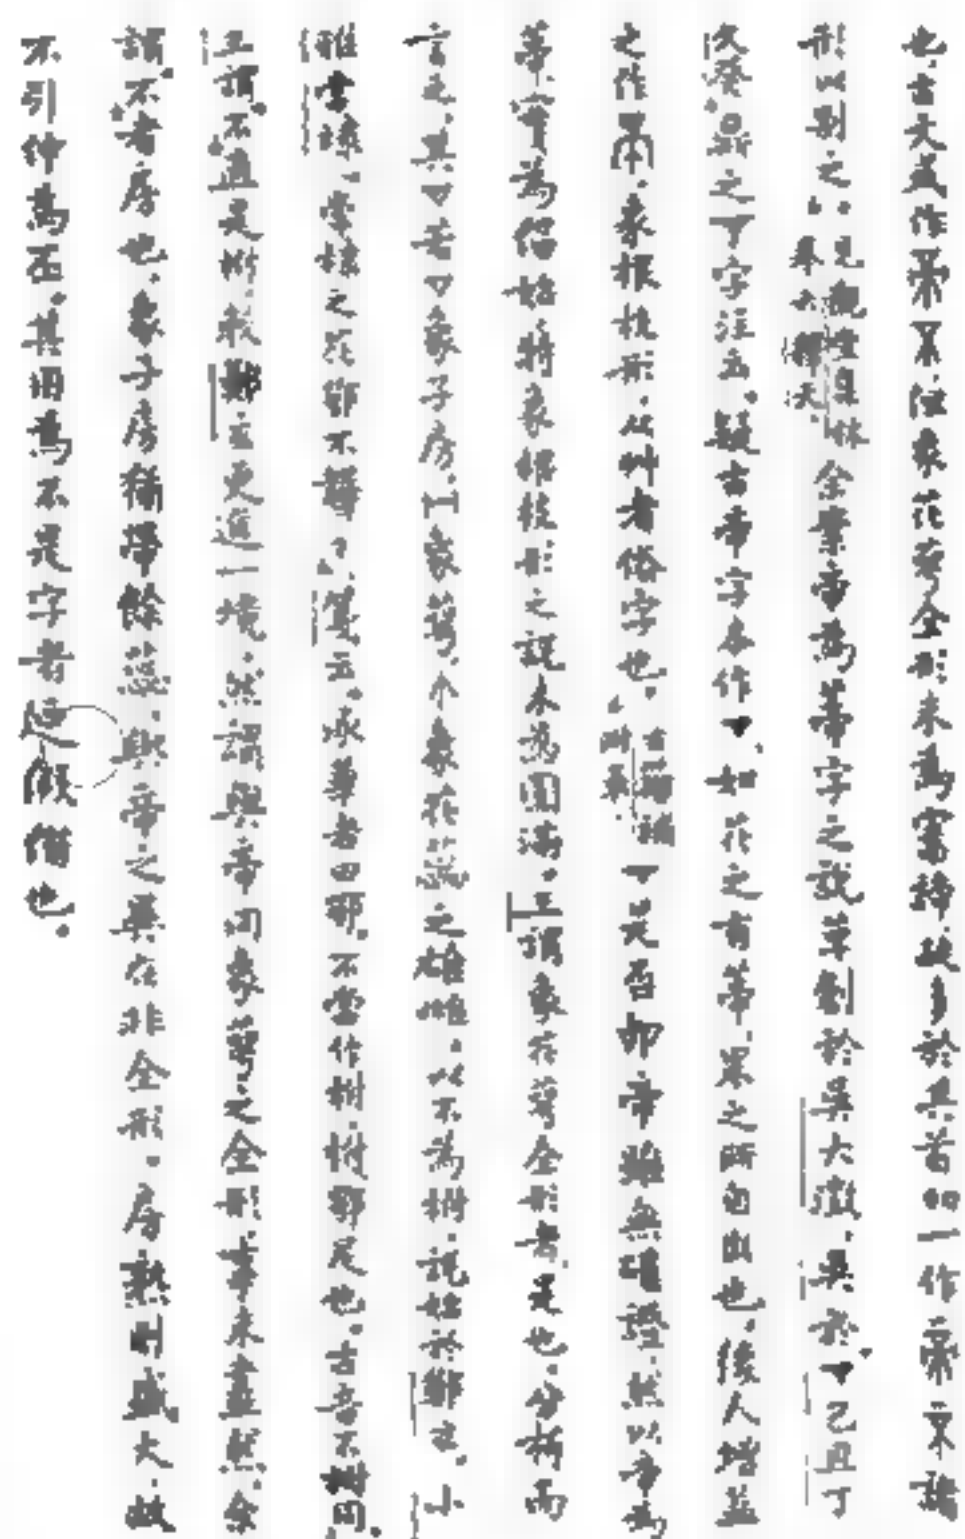 也，古文或作帝不，但象花萼全形，未為審諦，故多於其首加一作帝不諸
形以別之。（見觀堂集林卷六釋天）余案帝為蒂字之說草創於吳大澂，吳於▼己且丁
父癸鼎之▼字注云，疑古帝字本作▼，如花之有蒂，果之所自出也，後人增益
之作帝，象根枝形，从艸者俗字也。（古籀補附录）▼是否即帝雖無確證，然以帝為
蒂，實為倡始，特象根枝形之說未為圓滿。王謂象花萼全形者是也。分析而
言之，其▽若▽象子房，象萼，个象花蕊之雄雌。以不為柎，說始於鄭玄。小
雅常棣，常棣之花鄂不韡々，箋云。承華者曰鄂。不當作柎，柎鄂足也。古音不柎同。
王謂不直是柎，較鄭玄更進一境，然謂與帝同象萼之全形，事未盡然。余
謂不者房也，象子房猶帶餘蕊，與帝之異在非全形。房熟則盛大，故
不引伸為丕。其用為不是字者迺假借也。